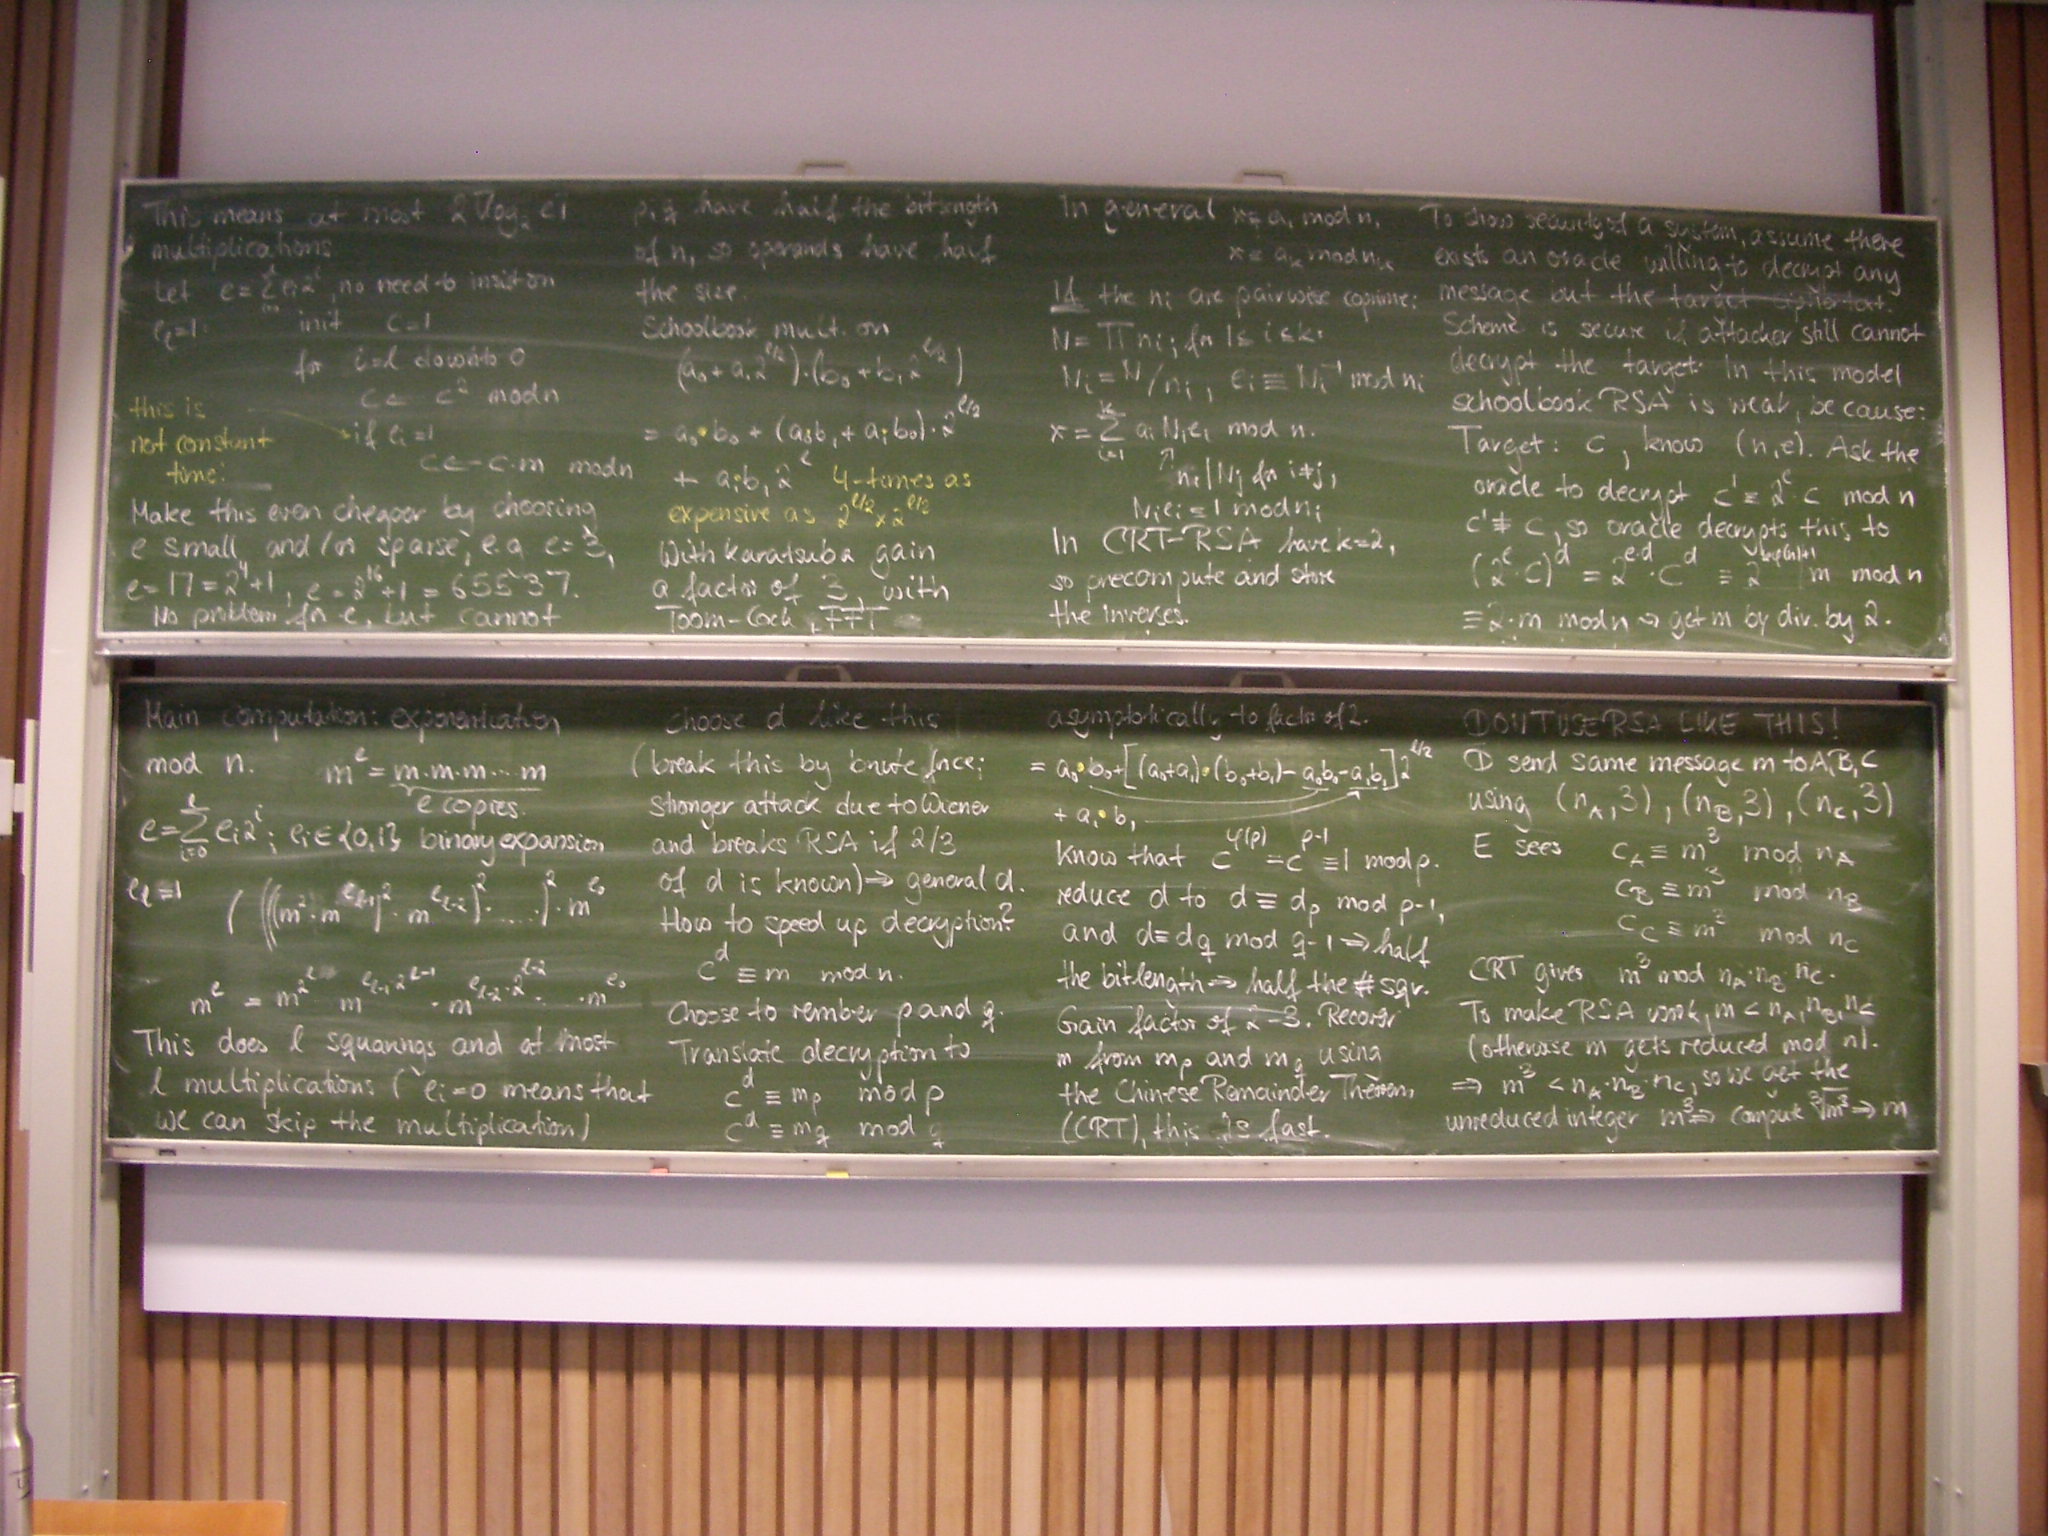 This means at most 2⌈log₂ e⌉
multiplications
Let e = Σ eᵢ2ⁱ, no need to insist on
e_ℓ=1: init c=1
for i=ℓ downto 0
c ← c² mod n
this is
not constant
time!
if eᵢ=1
c ← c·m mod n
Make this even cheaper by choosing
e small, and/or sparse, e.g. e=3,
e=17=2⁴+1, e=2¹⁶+1 = 65537.
No problem for e, but cannot
p,q have half the bitlength
of n, so operands have half
the size.
Schoolbook mult. on
(a₀+a₁2^{ℓ/2})·(b₀+b₁2^{ℓ/2})
= a₀·b₀ + (a₀b₁+a₁b₀)·2^{ℓ/2}
+ a₁b₁2^ℓ 4-times as
expensive as 2^{ℓ/2}×2^{ℓ/2}
With Karatsuba gain
a factor of 3, with
Toom-Cook, FFT
In general x ≡ a₁ mod n₁
x ≡ a_k mod n_k
If the nᵢ are pairwise coprime:
N = Π nᵢ; for 1≤i≤k:
Nᵢ = N/nᵢ, eᵢ ≡ Nᵢ⁻¹ mod nᵢ
x = Σ_{i=1}^{k} aᵢNᵢeᵢ mod n.
nᵢ|Nⱼ for i≠j,
Nᵢeᵢ ≡ 1 mod nᵢ
In CRT-RSA have k=2,
so precompute and store
the inverses.
To show security of a system, assume there
exists an oracle willing to decrypt any
message but the target ciphertext.
Scheme is secure if attacker still cannot
decrypt the target. In this model
schoolbook RSA is weak, because:
Target: c, know (n,e). Ask the
oracle to decrypt c' ≡ 2^e·c mod n
c' ≢ c, so oracle decrypts this to
(2^e·c)^d = 2^{e·d}·c^d ≡ 2 m mod n
≡ 2·m mod n → get m by div. by 2.
Main computation: exponentiation
mod n. m^e = m·m·m···m
e copies.
e = Σ_{i=0}^{ℓ} eᵢ2ⁱ; eᵢ∈{0,1} binary expansion
e_ℓ=1 ((((m²·m^{e_{ℓ-1}})²·m^{e_{ℓ-2}})²·.....)²·m^{e₀}
m^e = m^{2^ℓ} m^{e_{ℓ-1}·2^{ℓ-1}}·m^{e_{ℓ-2}·2^{ℓ-2}}· ·m^{e₀}
This does ℓ squarings and at most
ℓ multiplications (eᵢ=0 means that
we can skip the multiplication)
choose d like this
(break this by brute force;
stronger attack due to Wiener
and breaks RSA if 2/3
of d is known) ⇒ general d.
How to speed up decryption?
c^d ≡ m mod n.
Choose to rember p and q.
Translate decryption to
c^d ≡ m_p mod p
c^d ≡ m_q mod q
asymptotically to factor of 2.
= a₀·b₀+[(a₀+a₁)·(b₀+b₁)-a₀b₀-a₁b₁]2^{ℓ/2}
+ a₁·b₁
Know that c^{φ(p)} = c^{p-1} ≡ 1 mod p.
reduce d to d ≡ d_p mod p-1,
and d ≡ d_q mod q-1 ⇒ half
the bitlength ⇒ half the # sqr.
Gain factor of 2-3. Recover
m from m_p and m_q using
the Chinese Remainder Theorem
(CRT), this is fast.
DON'T USE RSA LIKE THIS!
① send same message m to A,B,C
using (n_A,3), (n_B,3), (n_C,3)
E sees c_A ≡ m³ mod n_A
c_B ≡ m³ mod n_B
c_C ≡ m³ mod n_C
CRT gives m³ mod n_A·n_B·n_C.
To make RSA work, m < n_A, n_B, n_C
(otherwise m gets reduced mod n).
⇒ m³ < n_A·n_B·n_C, so we get the
unreduced integer m³ ⇒ compute ∛m³ ⇒ m